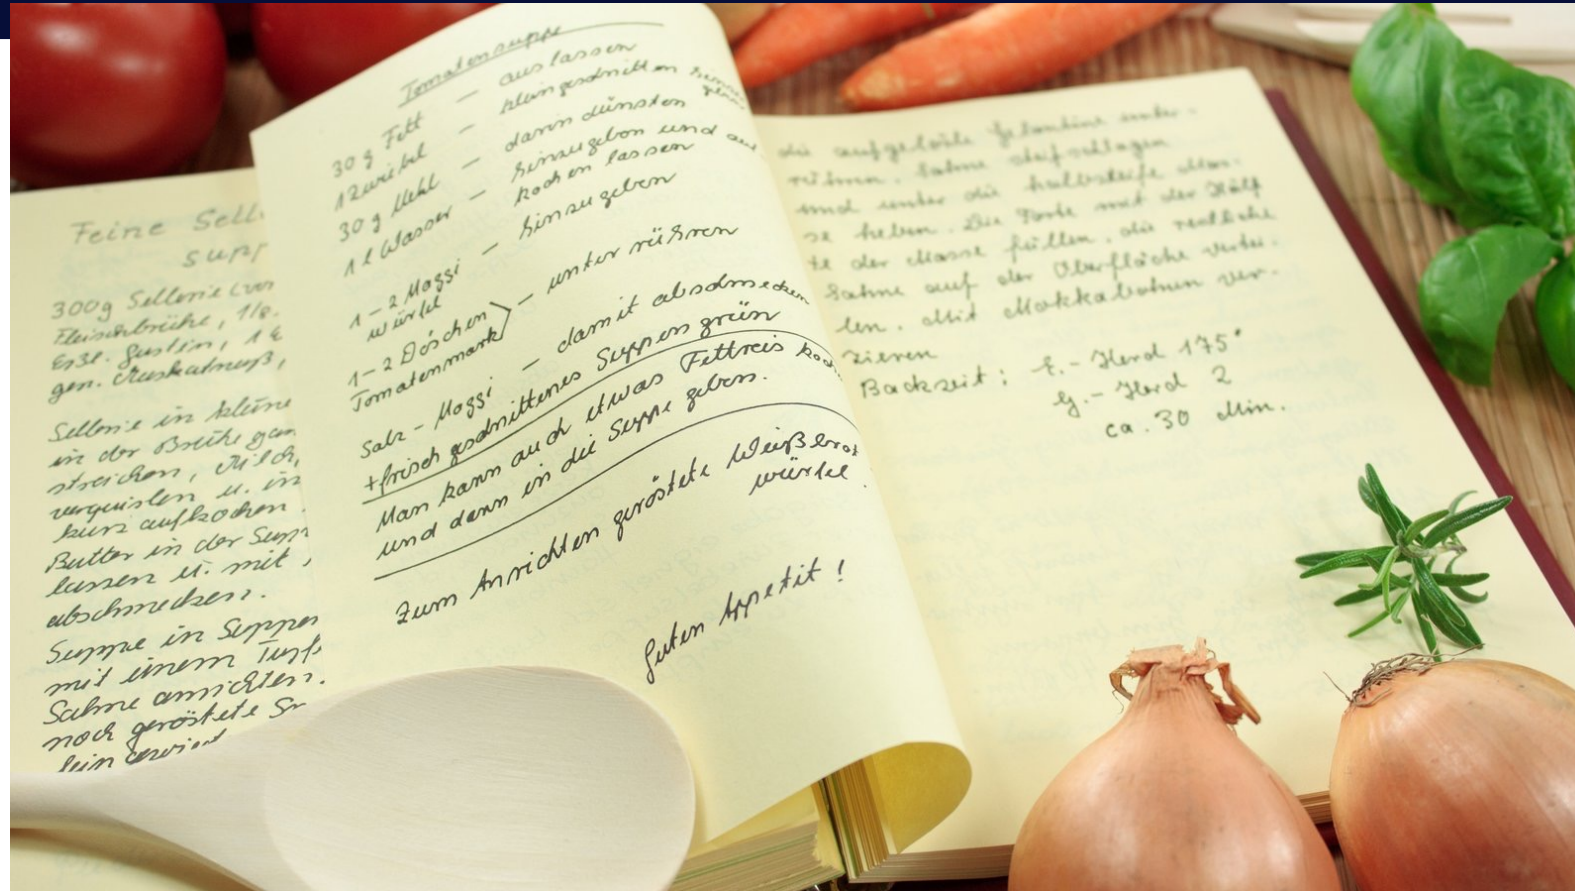 Feine Sell
supp
300g Sellerie (vor
Fleischbrühe, 1/8
Essl. Gustin, 1
gen. Muskatnuß,
Sellerie in kleine
in der Brühe gar
streichen, Milch,
verquirlen u. in
kurz aufkochen.
Butter in der Supp
lassen u. mit
abschmecken.
Suppe in Suppen
mit einem Tupf
Sahne anrichten.
noch geröstete
Tomatensuppe
30 g Fett — auslassen
1 Zwiebel — kleingeschnitten
30 g Mehl — darin dünsten
1 l Wasser — hinzugeben und auf
kochen lassen
1-2 Maggi — hinzugeben
würfel
1-2 Döschen
Tomatenmark — unter rühren
Salz - Maggi — damit abschmecken
+ frisch geschnittenes Suppengrün
Man kann auch etwas Fettreis koch
und dann in die Suppe geben.
Zum Anrichten geröstete Weißbrot
würfel.
Guten Appetit!
die aufgelöste Gelantine unter-
rühren. Sahne steifschlagen
und unter die halbsteife Mas-
se heben. Die Torte mit der Hälf
te der Masse füllen, die restliche
Sahne auf der Oberfläche vertei-
len. Mit Mokkabohnen ver-
zieren
Backzeit: E.-Herd 175°
G.-Herd 2
ca. 30 Min.